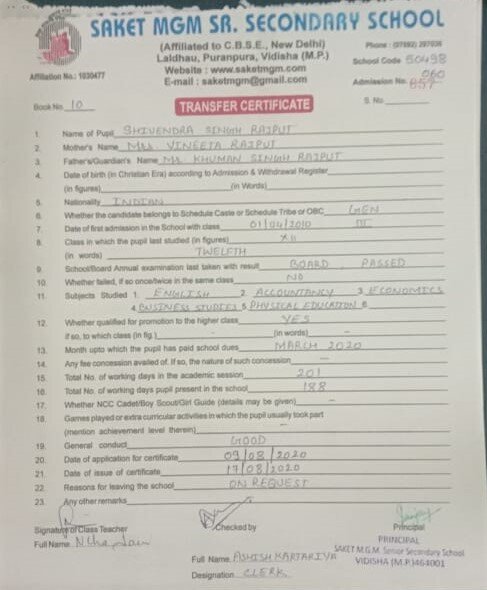 SAKET MGM SR. SECONDARY SCHOOL
(Affiliated to C.B.S.E., New Delhi)
Laldhau, Puranpura, Vidisha (M.P.)
Website : www.saketmgm.com
E-mail : saketmgm@gmail.com
Phone : (07592) 297036
School Code 50498
Affiliation No.: 1030477
Admission No. 060
857
Book No. 10
TRANSFER CERTIFICATE
S. No.
1. Name of Pupil SHIVENDRA SINGH RAJPUT
2. Mother's Name MRS VINEETA RAJPUT
3. Father's/Guardian's Name MR. KHUMAN SINGH RAJPUT
4. Date of birth (in Christian Era) according to Admission & Withdrawal Register
(in figures) (in Words)
5. Nationality INDIAN
6. Whether the candidate belongs to Schedule Caste or Schedule Tribe or OBC GEN
7. Date of first admission in the School with class 01/04/2010 III
8. Class in which the pupil last studied (in figures) XII
(in words) TWELFTH
9. School/Board Annual examination last taken with result BOARD PASSED
10. Whether failed, if so once/twice in the same class NO
11. Subjects Studied 1. ENGLISH 2. ACCOUNTANCY 3. ECONOMICS
4. BUSINESS STUDIES 5. PHYSICAL EDUCATION 6.
12. Whether qualified for promotion to the higher class YES
if so, to which class (in fig.) - (in words) -
13. Month upto which the pupil has paid school dues MARCH 2020
14. Any fee concession availed of. If so, the nature of such concession -
15. Total No. of working days in the academic session 201
16. Total No. of working days pupil present in the school 188
17. Whether NCC Cadet/Boy Scout/Girl Guide (details may be given) -
18. Games played or extra curricular activities in which the pupil usually took part
(mention achievement level therein) -
19. General conduct GOOD
20. Date of application for certificate 09/08/2020
21. Date of issue of certificate 17/08/2020
22. Reasons for leaving the school ON REQUEST
23. Any other remarks
Signature of Class Teacher
Full Name
Checked by
Full Name ASHISH KARTARIYA
Designation CLERK
Principal
PRINCIPAL
SAKET M.G.M. Senior Secondary School
VIDISHA (M.P.)464001